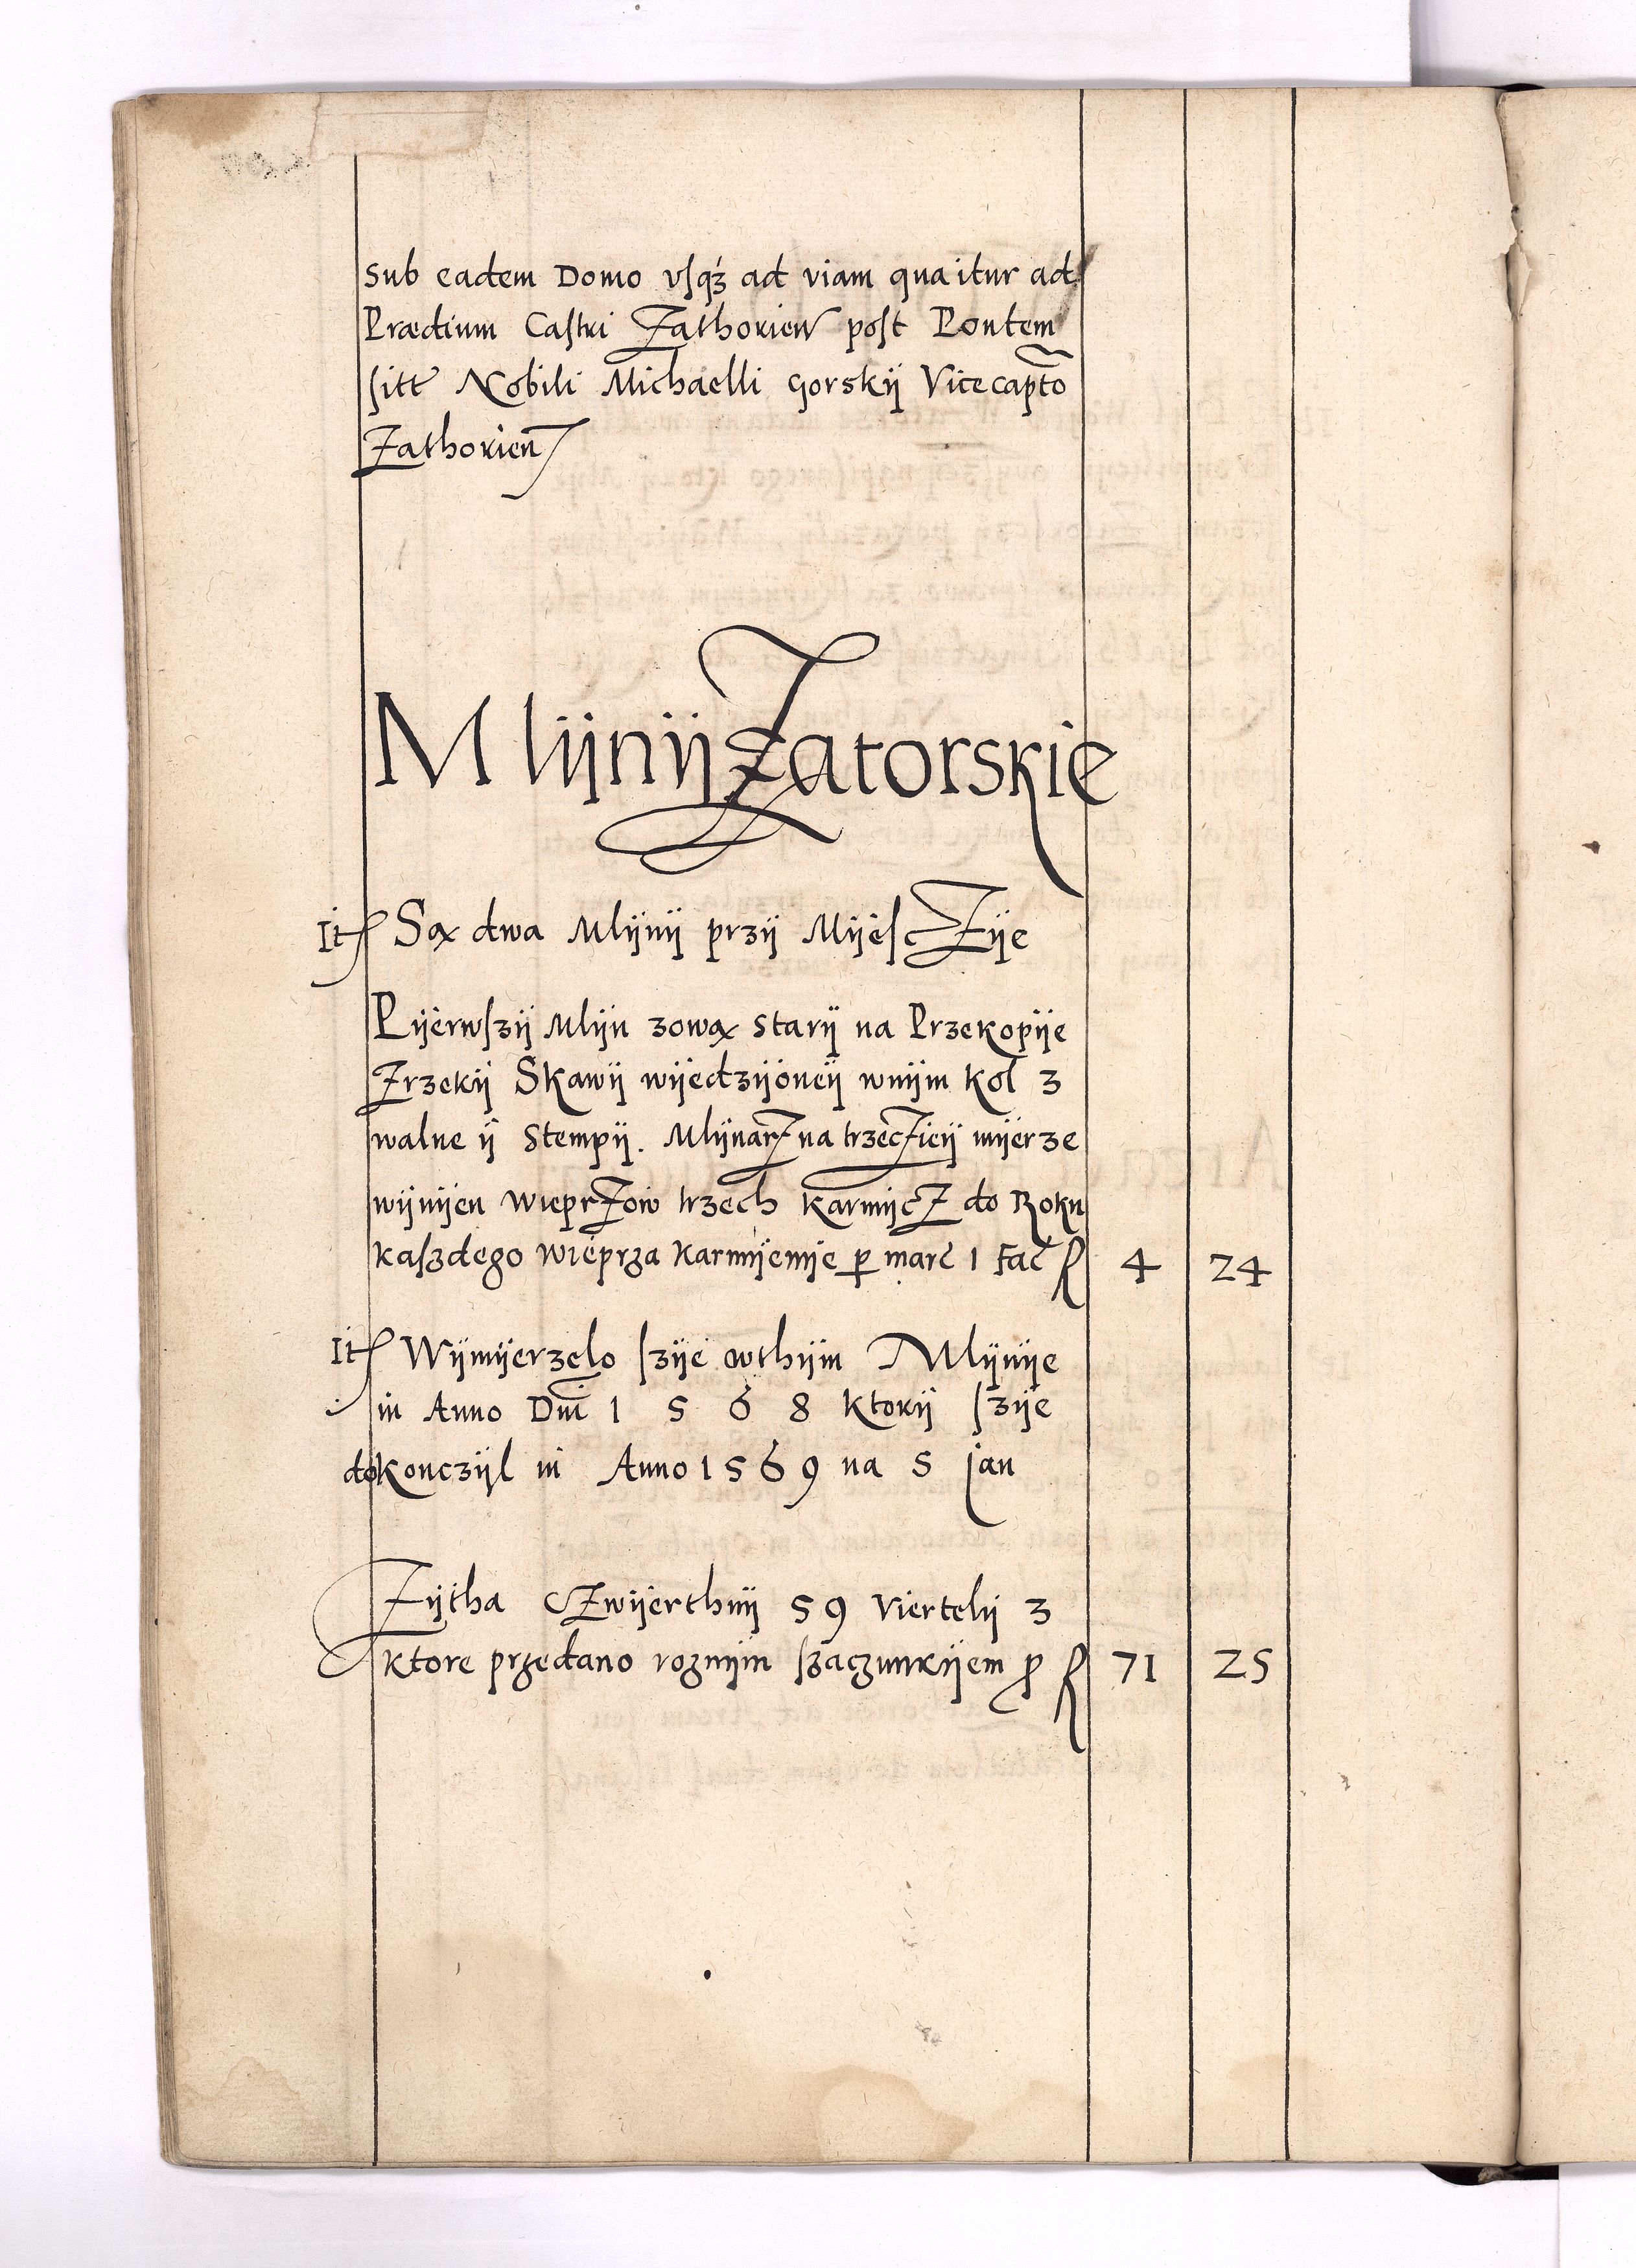 Sub eadem Domo vsq3 ad viam qua itur ad
Prædium Castri Zathorien post Pontem
sitt Nobili Michaelli Gorskij Vicecapto
Zathorien
Mlijnij Zatorskie
It Są dwa Mlijnij przij MijesćZije
Pijerwszij Mlijn zową Starij na Przekopije
Zrzekij Skawij wijedzijoneij wnijm kol 3
walne ij Stempij. MlijnarZ na trzećZieij mijerze
wijnijen wieprZow trzech karmijcZ do Roku
kaszdego wieprza karmijemije p marc 1 fac
4 24
It Wijmijerzelo szije wthijm Mlijnije
in Anno Dni 1 5 6 8 ktorij szije
dokonczijl in Anno 1569 na 5 jan
Zijtha cZwijerthnij 59 Viertelij 3
ktore przedano roznijm szaczunkijem p
71 25